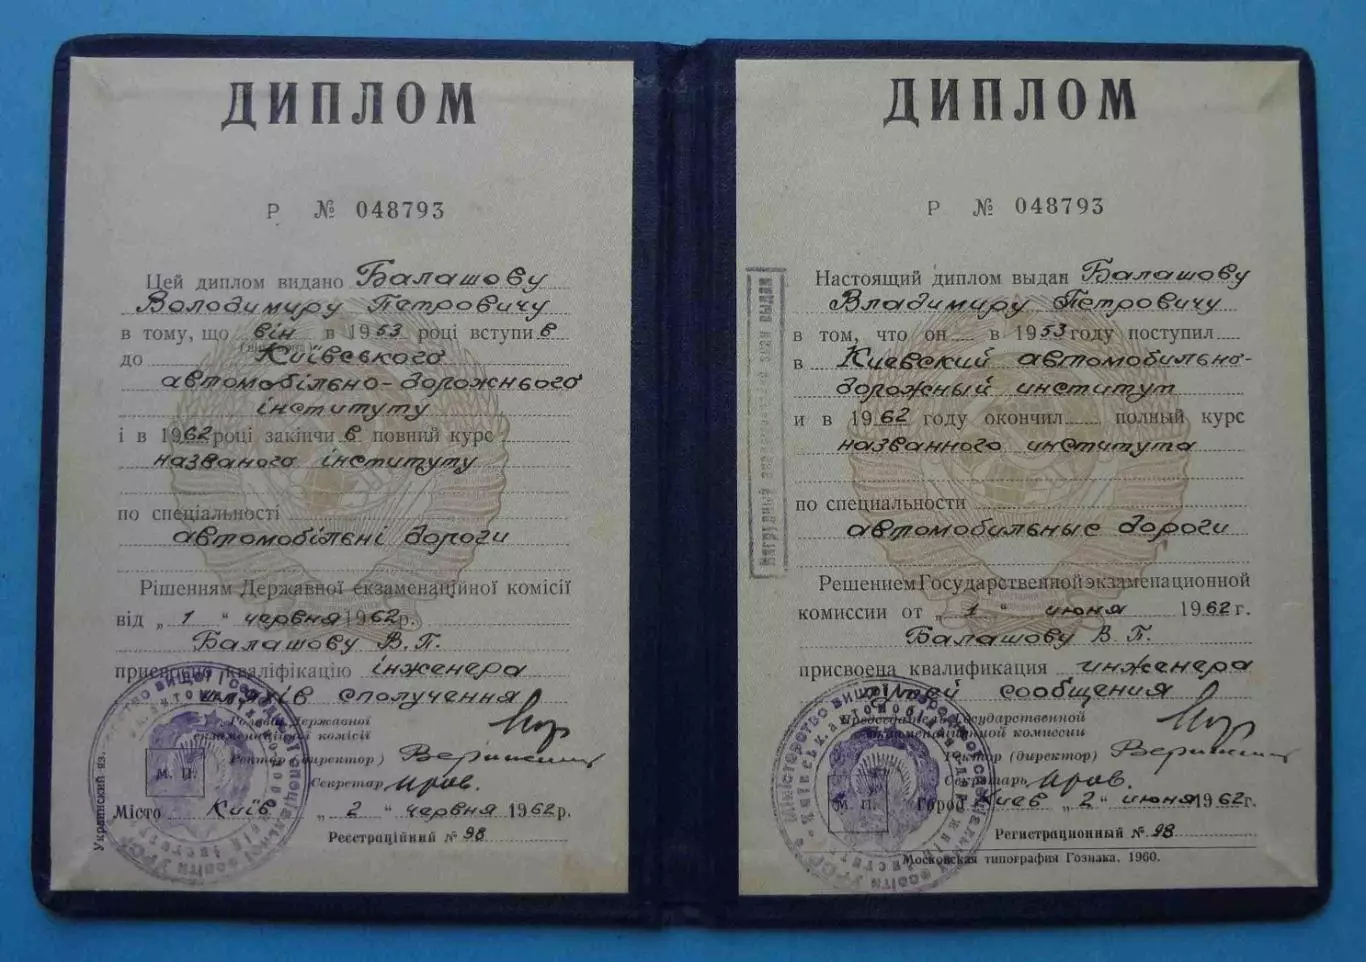 ДИПЛОМ
Р № 048793
Цей диплом видано Балашову
Володимиру Петровичу
в тому, що він в 1953 році вступив
до Київського
автомобільно-дорожнього
інституту
і в 1962 році закінчив повний курс
названого інституту
по спеціальності
автомобільні дороги
Рішенням Державної екзаменаційної комісії
від „ 1 “ червня 1962 р.
Балашову В. П.
присвоєно кваліфікацію інженера
шляхів сполучення
Голова Державної
екзаменаційної комісії
Ректор (директор)
Секретар
М. П.
Місто Київ „ 2 “ червня 1962 р.
Реєстраційний № 98
Украинский яз.
ДИПЛОМ
Р № 048793
Настоящий диплом выдан Балашову
Владимиру Петровичу
в том, что он в 1953 году поступил
в Киевский автомобильно-
дорожный институт
и в 1962 году окончил полный курс
названного института
по специальности
автомобильные дороги
Решением Государственной экзаменационной
комиссии от „ 1 “ июня 1962 г.
Балашову В. П.
присвоена квалификация инженера
путей сообщения
Председатель Государственной
экзаменационной комиссии
Ректор (директор)
Секретарь
М. П.
Город Киев „ 2 “ июня 1962 г.
Регистрационный № 98
Московская типография Гознака. 1960.
Нагрудный знак выдан